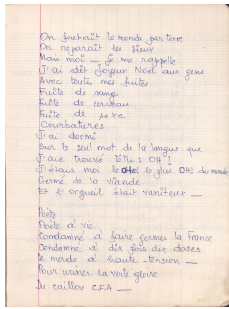 On foutait le monde par terre
On reparait les lieux
Mau moi — je me rappelle
J'ai dit Joyeux Noël aux gens
Avec toutes mes fuites
Fuite de sang
Fuite de cerveau
Fuite de sexe
Courbatures
J'ai dormi
Sur le seul mot de la langue que
J'aie trouvé OH !
J'étais moi le plus OH! du monde
Germe de la viande
Et l'orgueil était vaniteux —
Poète
Poète à vie
Condamné à faire germer la France
Condamné à dix fois dix doses
De merde à haute-tension —
Pour uriner la verte gloire
Du caillou C.F.A —